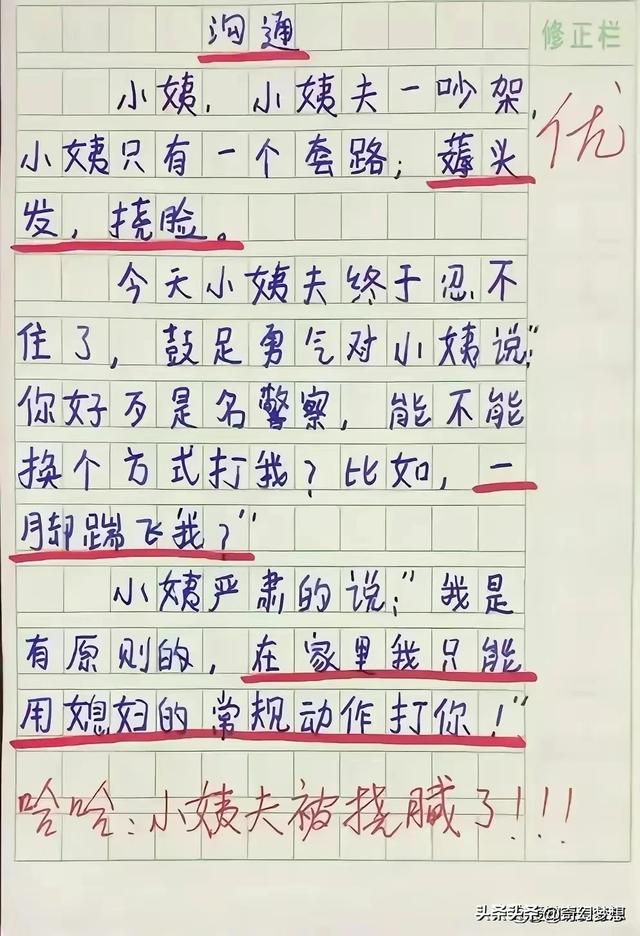 沟通
修正栏
优
小姨,小姨夫一吵架,
小姨只有一个套路;薅头
发,挠脸。
今天小姨夫终于忍不
住了,鼓足勇气对小姨说:"
你好歹是名警察,能不能
换个方式打我?比如,一
脚踹飞我?"
小姨严肃的说:"我是
有原则的,在家里我只能
用媳妇的常规动作打你!"
哈哈:小姨夫被挠臧了!!!